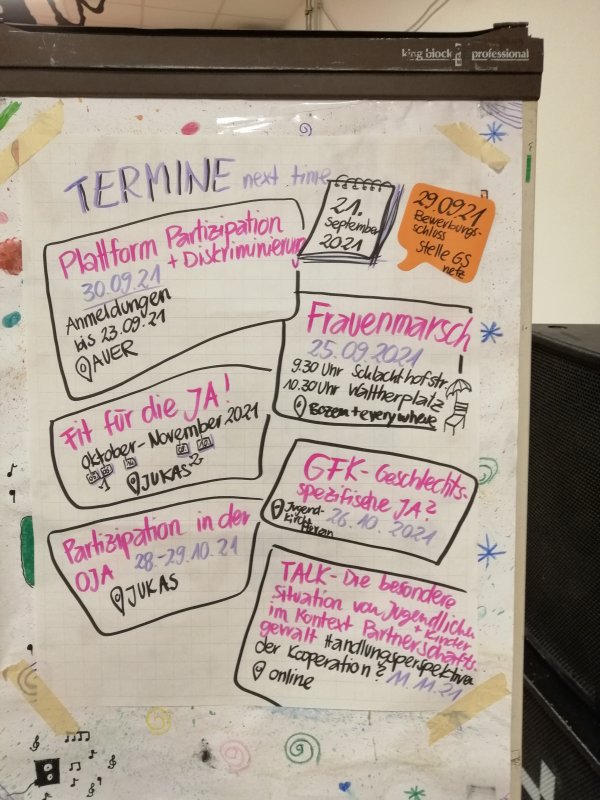 king block professional
TERMINE next time
21.
September
2021
29.09.21
Bewerbungs-
schluss
Stelle GS
netz
Plattform Partizipation
+ Diskriminierung
30.09.21
Anmeldungen
bis 23.09.21
AUER
Frauenmarsch
25.09.2021
9.30 Uhr Schlachthofstr.
10.30 Uhr Waltherplatz
Bozen + everywhere
Fit für die JA!
Oktober - November 2021
JUKAS
GFK - Geschlechts-
spezifische JA?
Jugend-
kirche
Meran
26.10.2021
Partizipation in der
OJA 28.-29.10.21
JUKAS
TALK - Die besondere
Situation von Jugendlichen
+ Kinder
im Kontext Partnerschafts-
gewalt Handlungsperspektiven
der Kooperation? 11.11.21
online